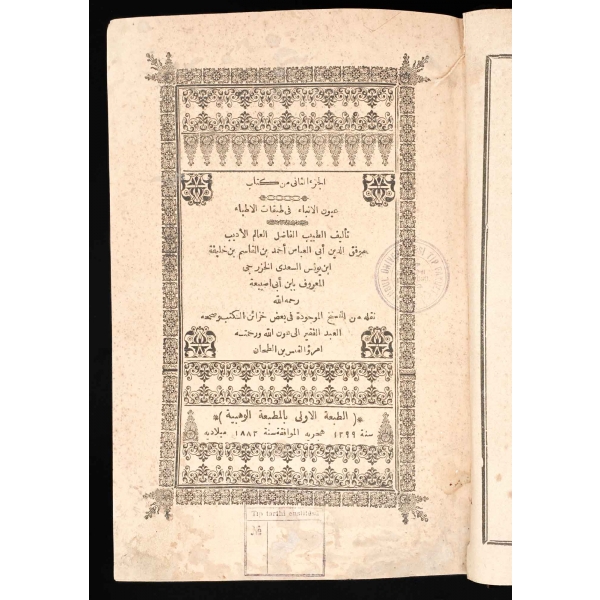 الجزء الثاني من كتاب
عيون الانباء في طبقات الاطباء
تأليف الطبيب الفاضل العالم الأديب
موفق الدين أبي العباس أحمد بن القاسم بن خليفة
ابن يونس السعدي الخزرجي
المعروف بابن أبي أصيبعة
رحمه الله
نقله من النسخ الموجودة في بعض خزائن الكتب وصححه
العبد الفقير الى عون الله ورحمته
امرؤ القيس بن الطحان
(الطبعة الاولى بالمطبعة الوهبية)
سنة ١٢٩٩ هجريه الموافقة سنة ١٨٨٢ ميلاديه
Tıp tarihi enstitüsü